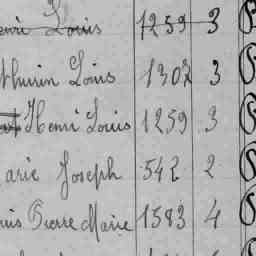 Louis 1259 3
thurin Louis 1302 3
Henri Louis 1259 3
arie Joseph 542 2
uis Pierre Marie 1583 4